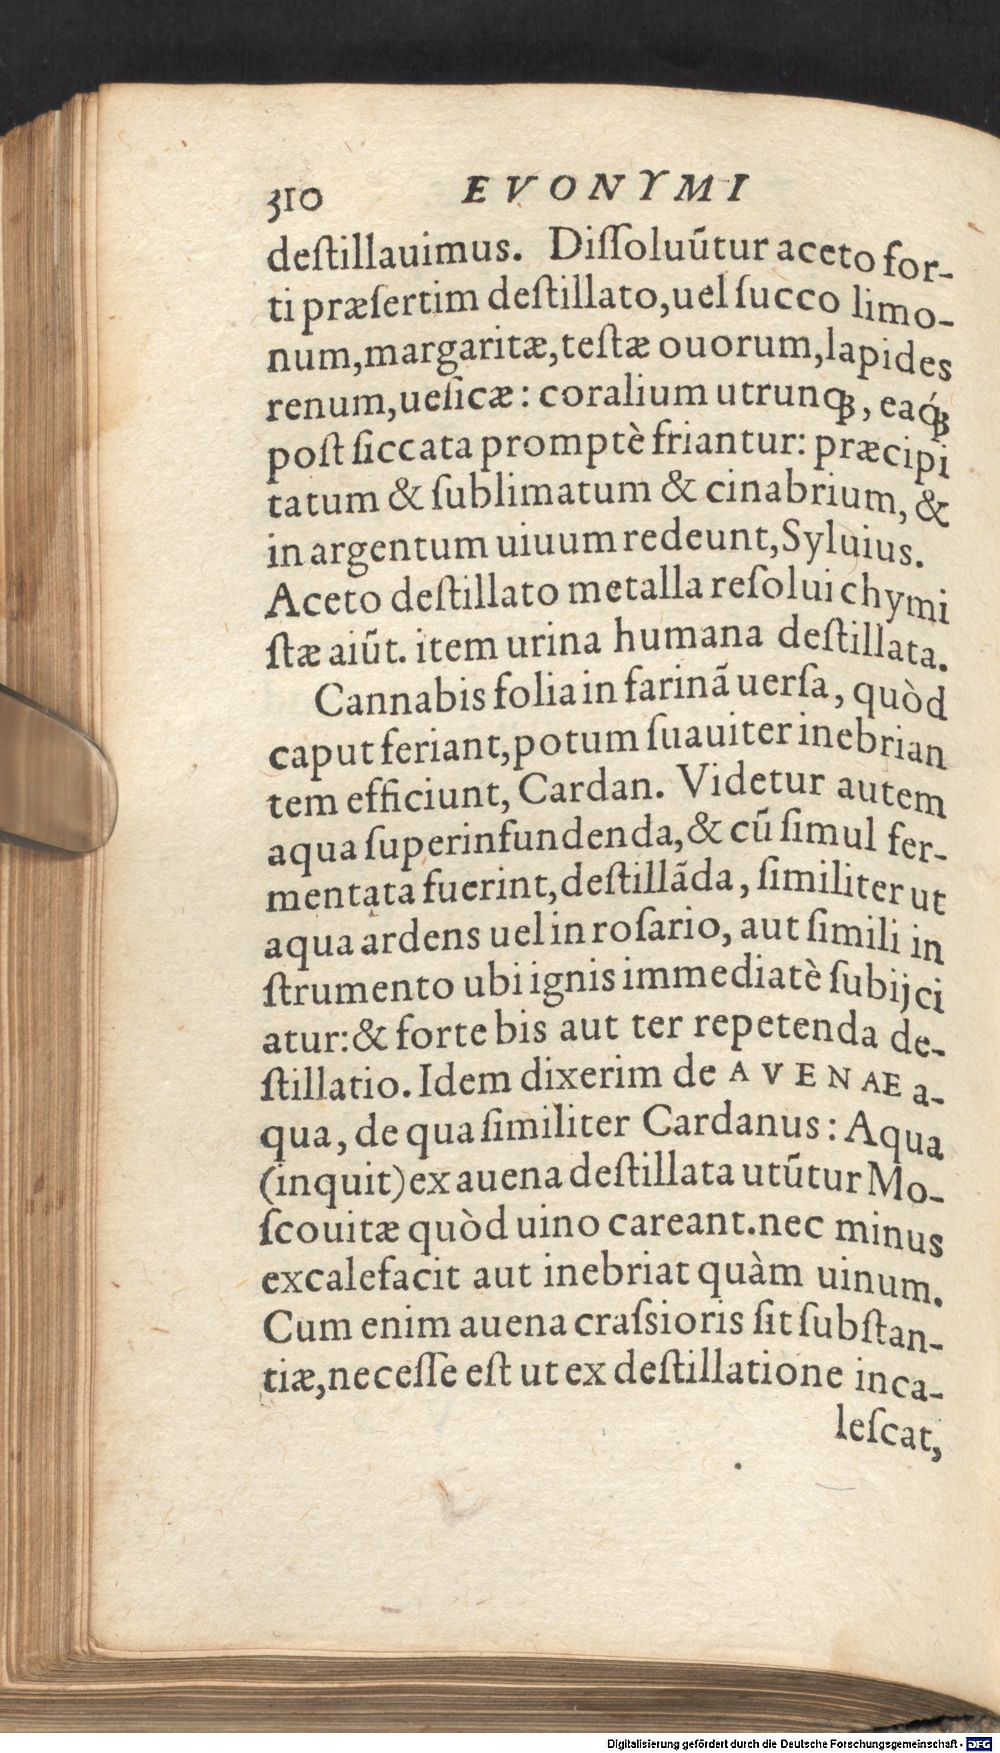 310 EVONYMI
deſtillauimus. Diſſoluũtur aceto for-
ti præſertim deſtillato, uel ſucco limo-
num, margaritæ, teſtæ ouorum, lapides
renum, ueſicæ: coralium utrunq́ꝫ, eaq́ꝫ
poſt ſiccata promptè friantur: præcipi
tatum & ſublimatum & cinabrium, &
in argentum uiuum redeunt, Syluius.
Aceto deſtillato metalla reſolui chymi
ſtæ aiũt. item urina humana deſtillata.
Cannabis folia in farinã uerſa, quòd
caput feriant, potum ſuauiter inebrian
tem efficiunt, Cardan. Videtur autem
aqua ſuperinfundenda, & cũ ſimul fer-
mentata fuerint, deſtillãda, ſimiliter ut
aqua ardens uel in roſario, aut ſimili in
ſtrumento ubi ignis immediatè ſubijci
atur: & forte bis aut ter repetenda de-
ſtillatio. Idem dixerim de AVENAE a-
qua, de qua ſimiliter Cardanus: Aqua
(inquit) ex auena deſtillata utũtur Mo-
ſcouitæ quòd uino careant. nec minus
excalefacit aut inebriat quàm uinum.
Cum enim auena craſsioris ſit ſubſtan-
tiæ, neceſſe eſt ut ex deſtillatione inca-
leſcat,
Digitalisierung gefördert durch die Deutsche Forschungsgemeinschaft - DFG